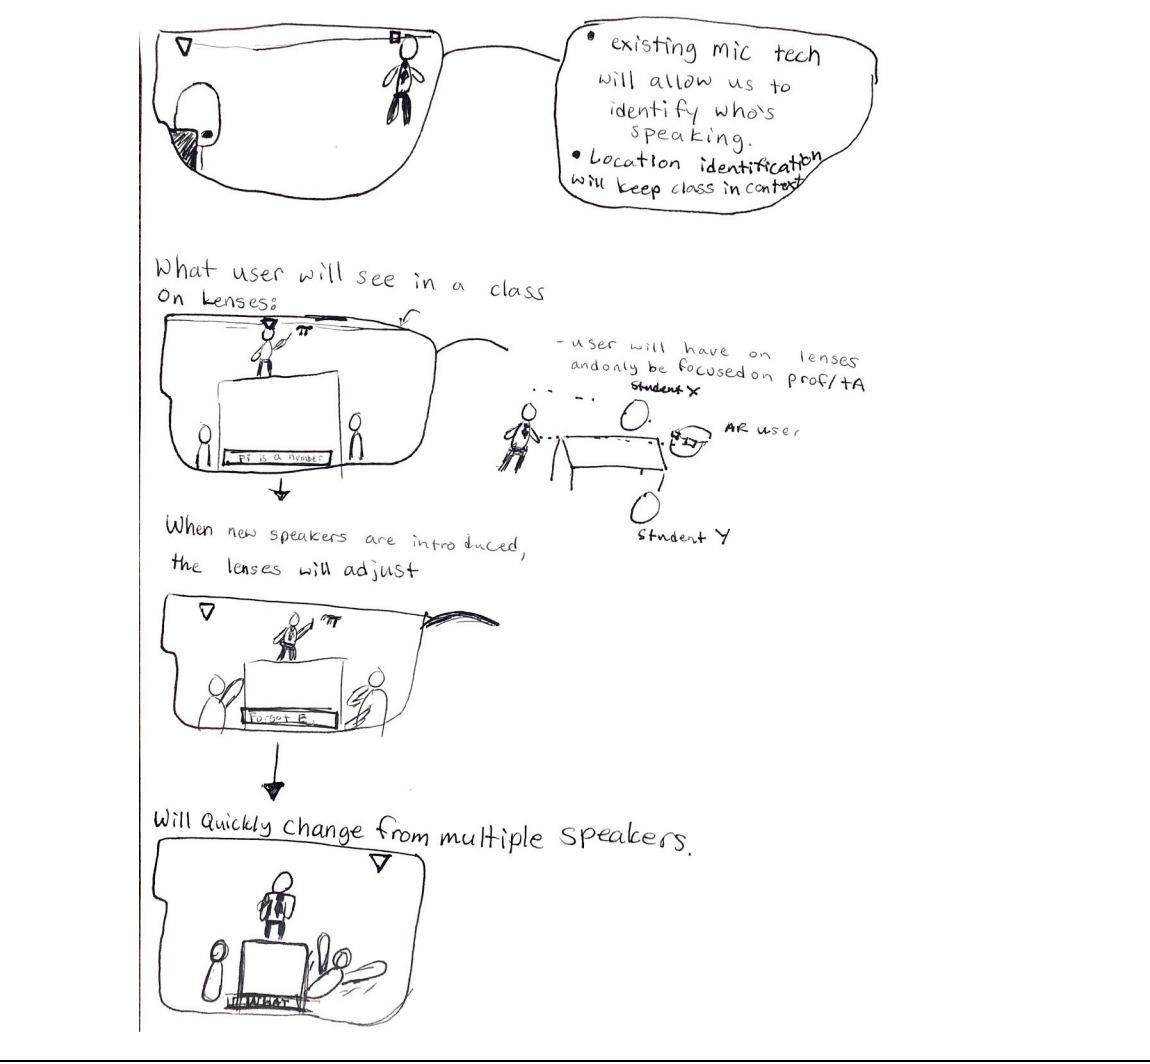 • existing mic tech
will allow us to
identify who's
speaking.
• Location identification
will keep class in context
What user will see in a class
On Lenses:
π
Pi is a number
- user will have on lenses
and only be focused on prof/tA
Student X
AR user
Student Y
When new speakers are introduced,
the lenses will adjust
π
Forgot E.
Will Quickly change from multiple speakers.
WHAT